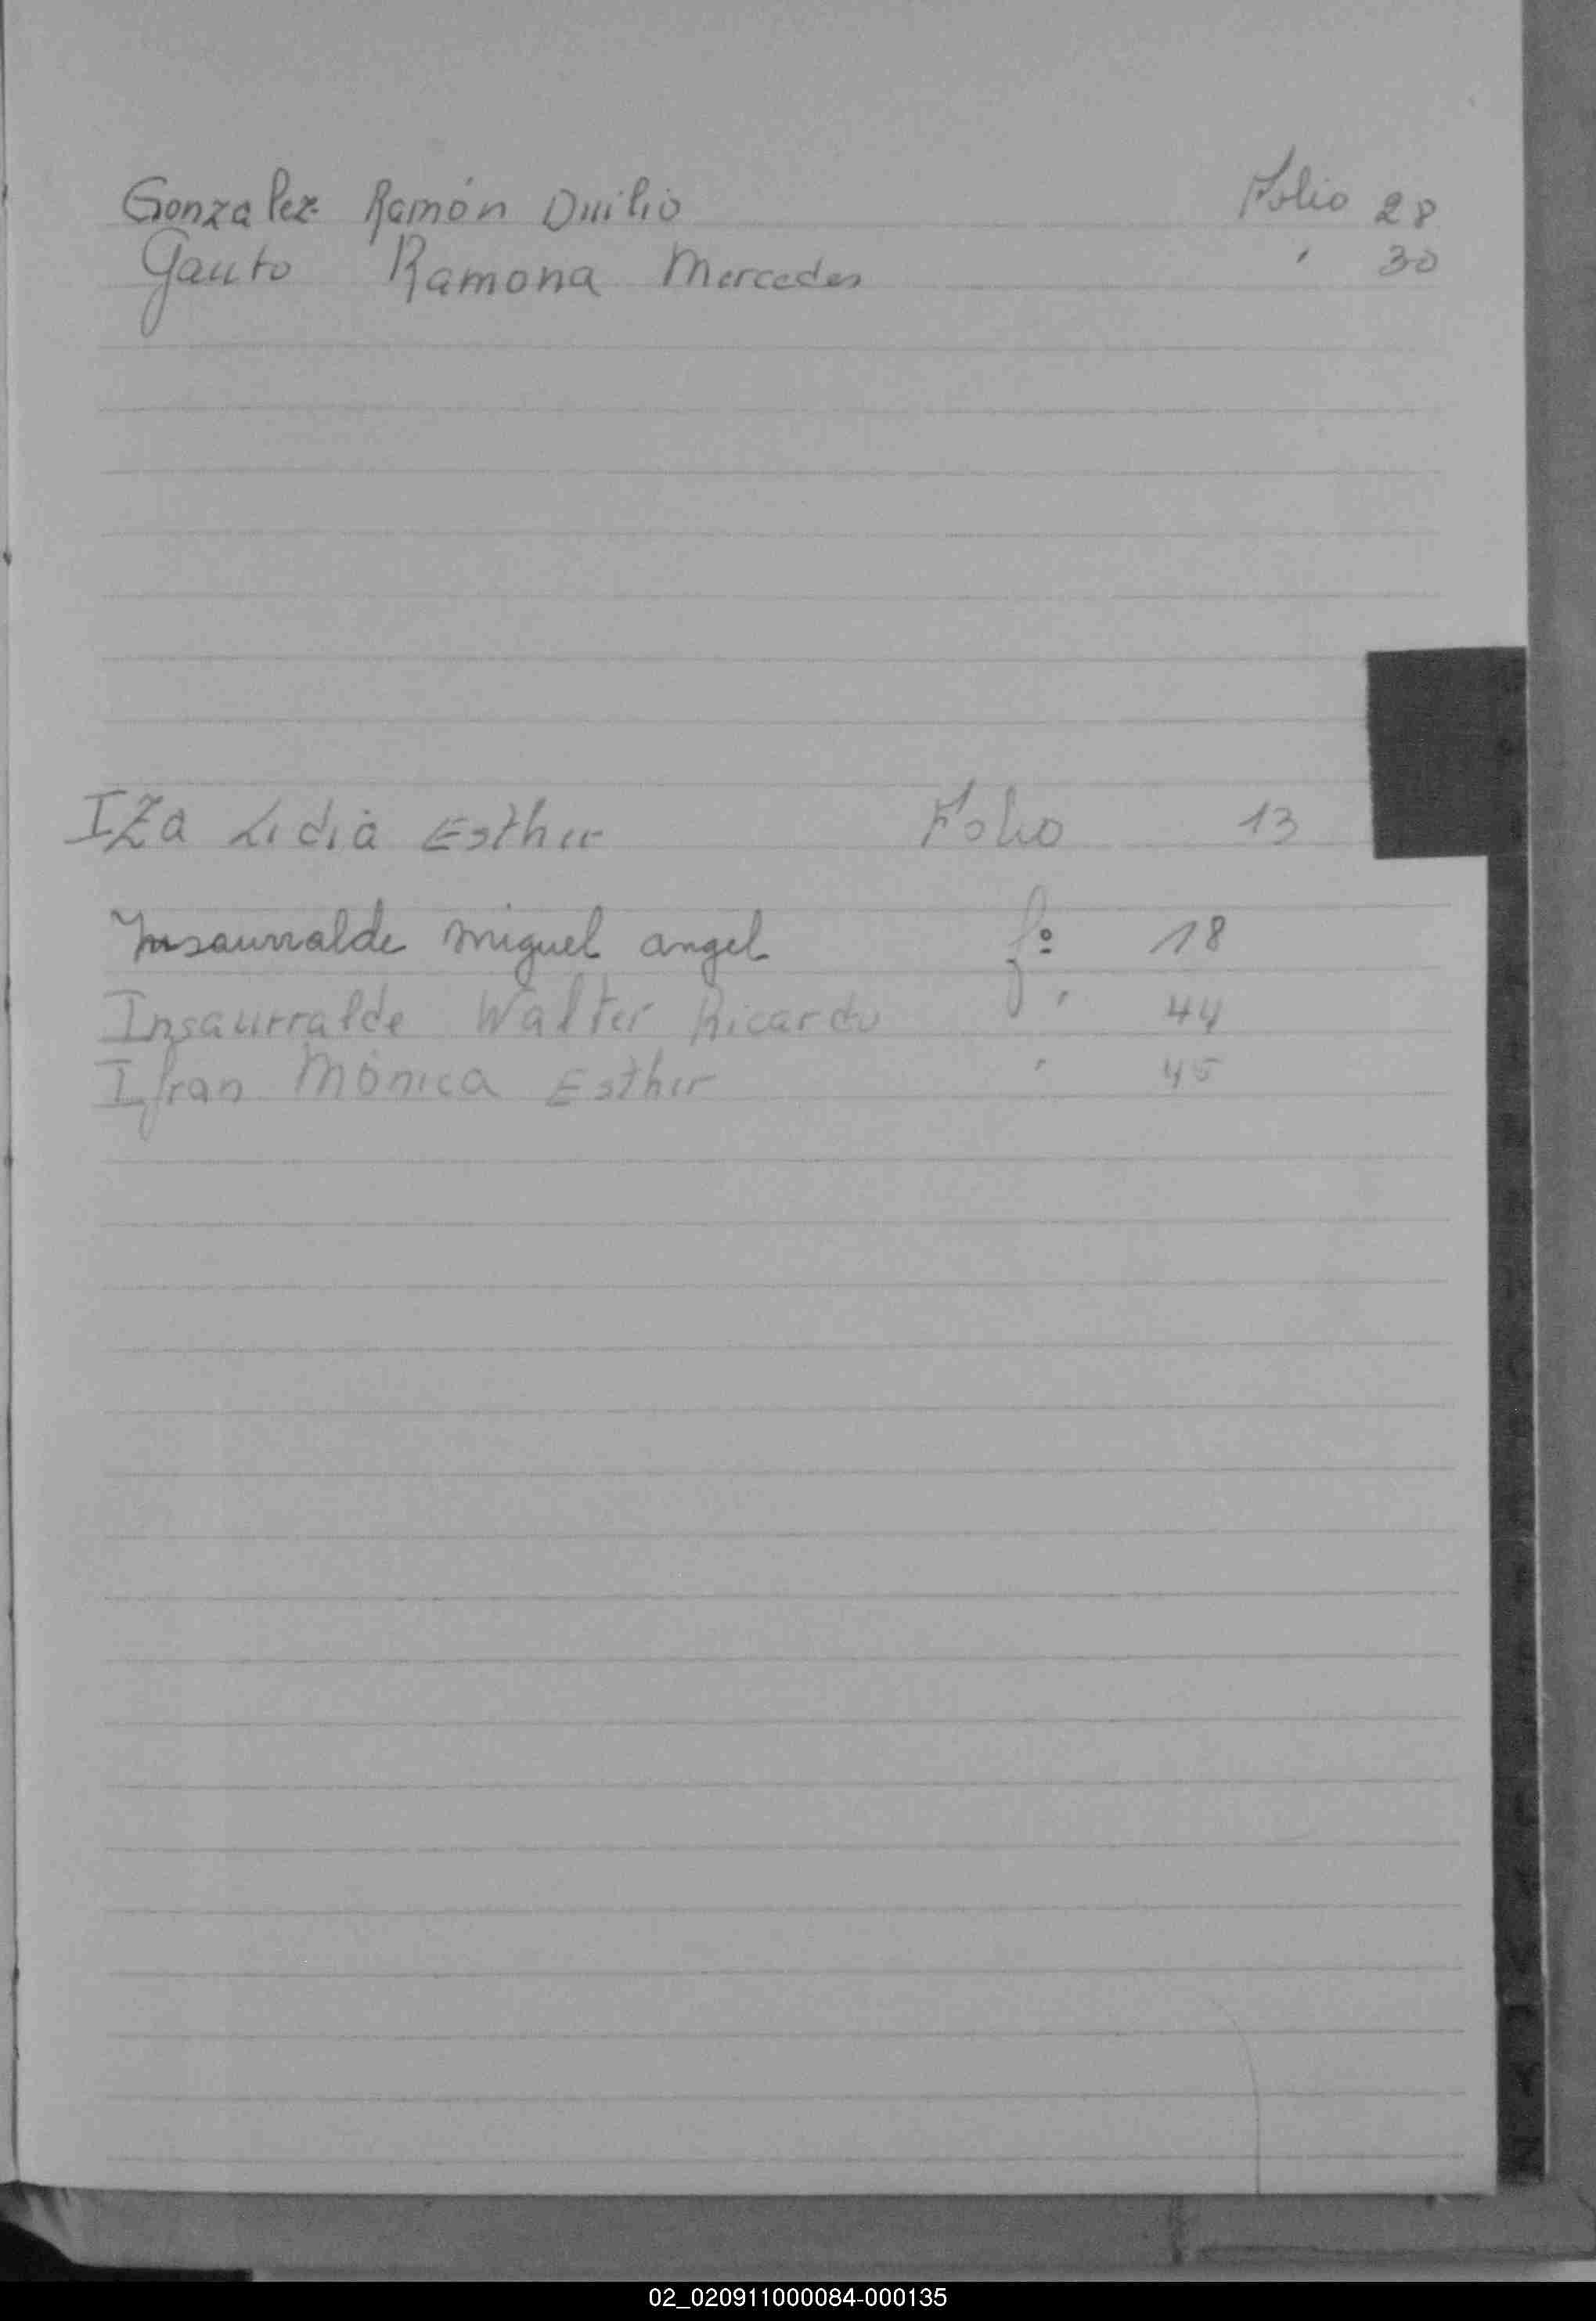 Gonzalez Ramón Duilio Folio 28
Gauto Ramona Mercedes " 30
IZa Lidia Esther Folio 13
Insaurralde miguel angel fº 18
Insaurralde Walter Ricardo " 44
Ifran Mónica Esther " 45
02_020911000084-000135